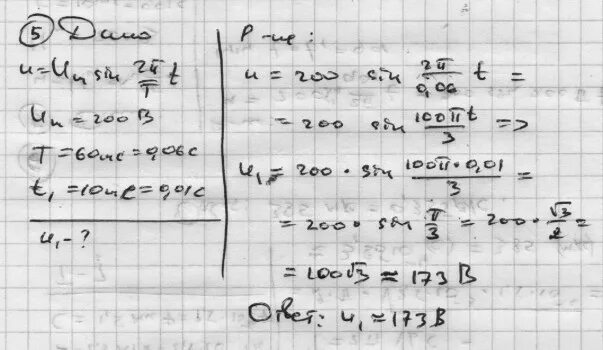 ⑤ Дано
u = Uм sin 2π/T t
Uм = 200 В
T = 60мс = 0,06с
t₁ = 10мс = 0,01с
u₁ - ?
Р-ие:
u = 200 sin 2π/0,06 t =
= 200 sin 100πt/3 =>
u₁ = 200 · sin 100π·0,01/3 =
= 200 · sin π/3 = 200 · √3/2 =
= 100√3 ≈ 173 В
Ответ: u₁ ≈ 173 В